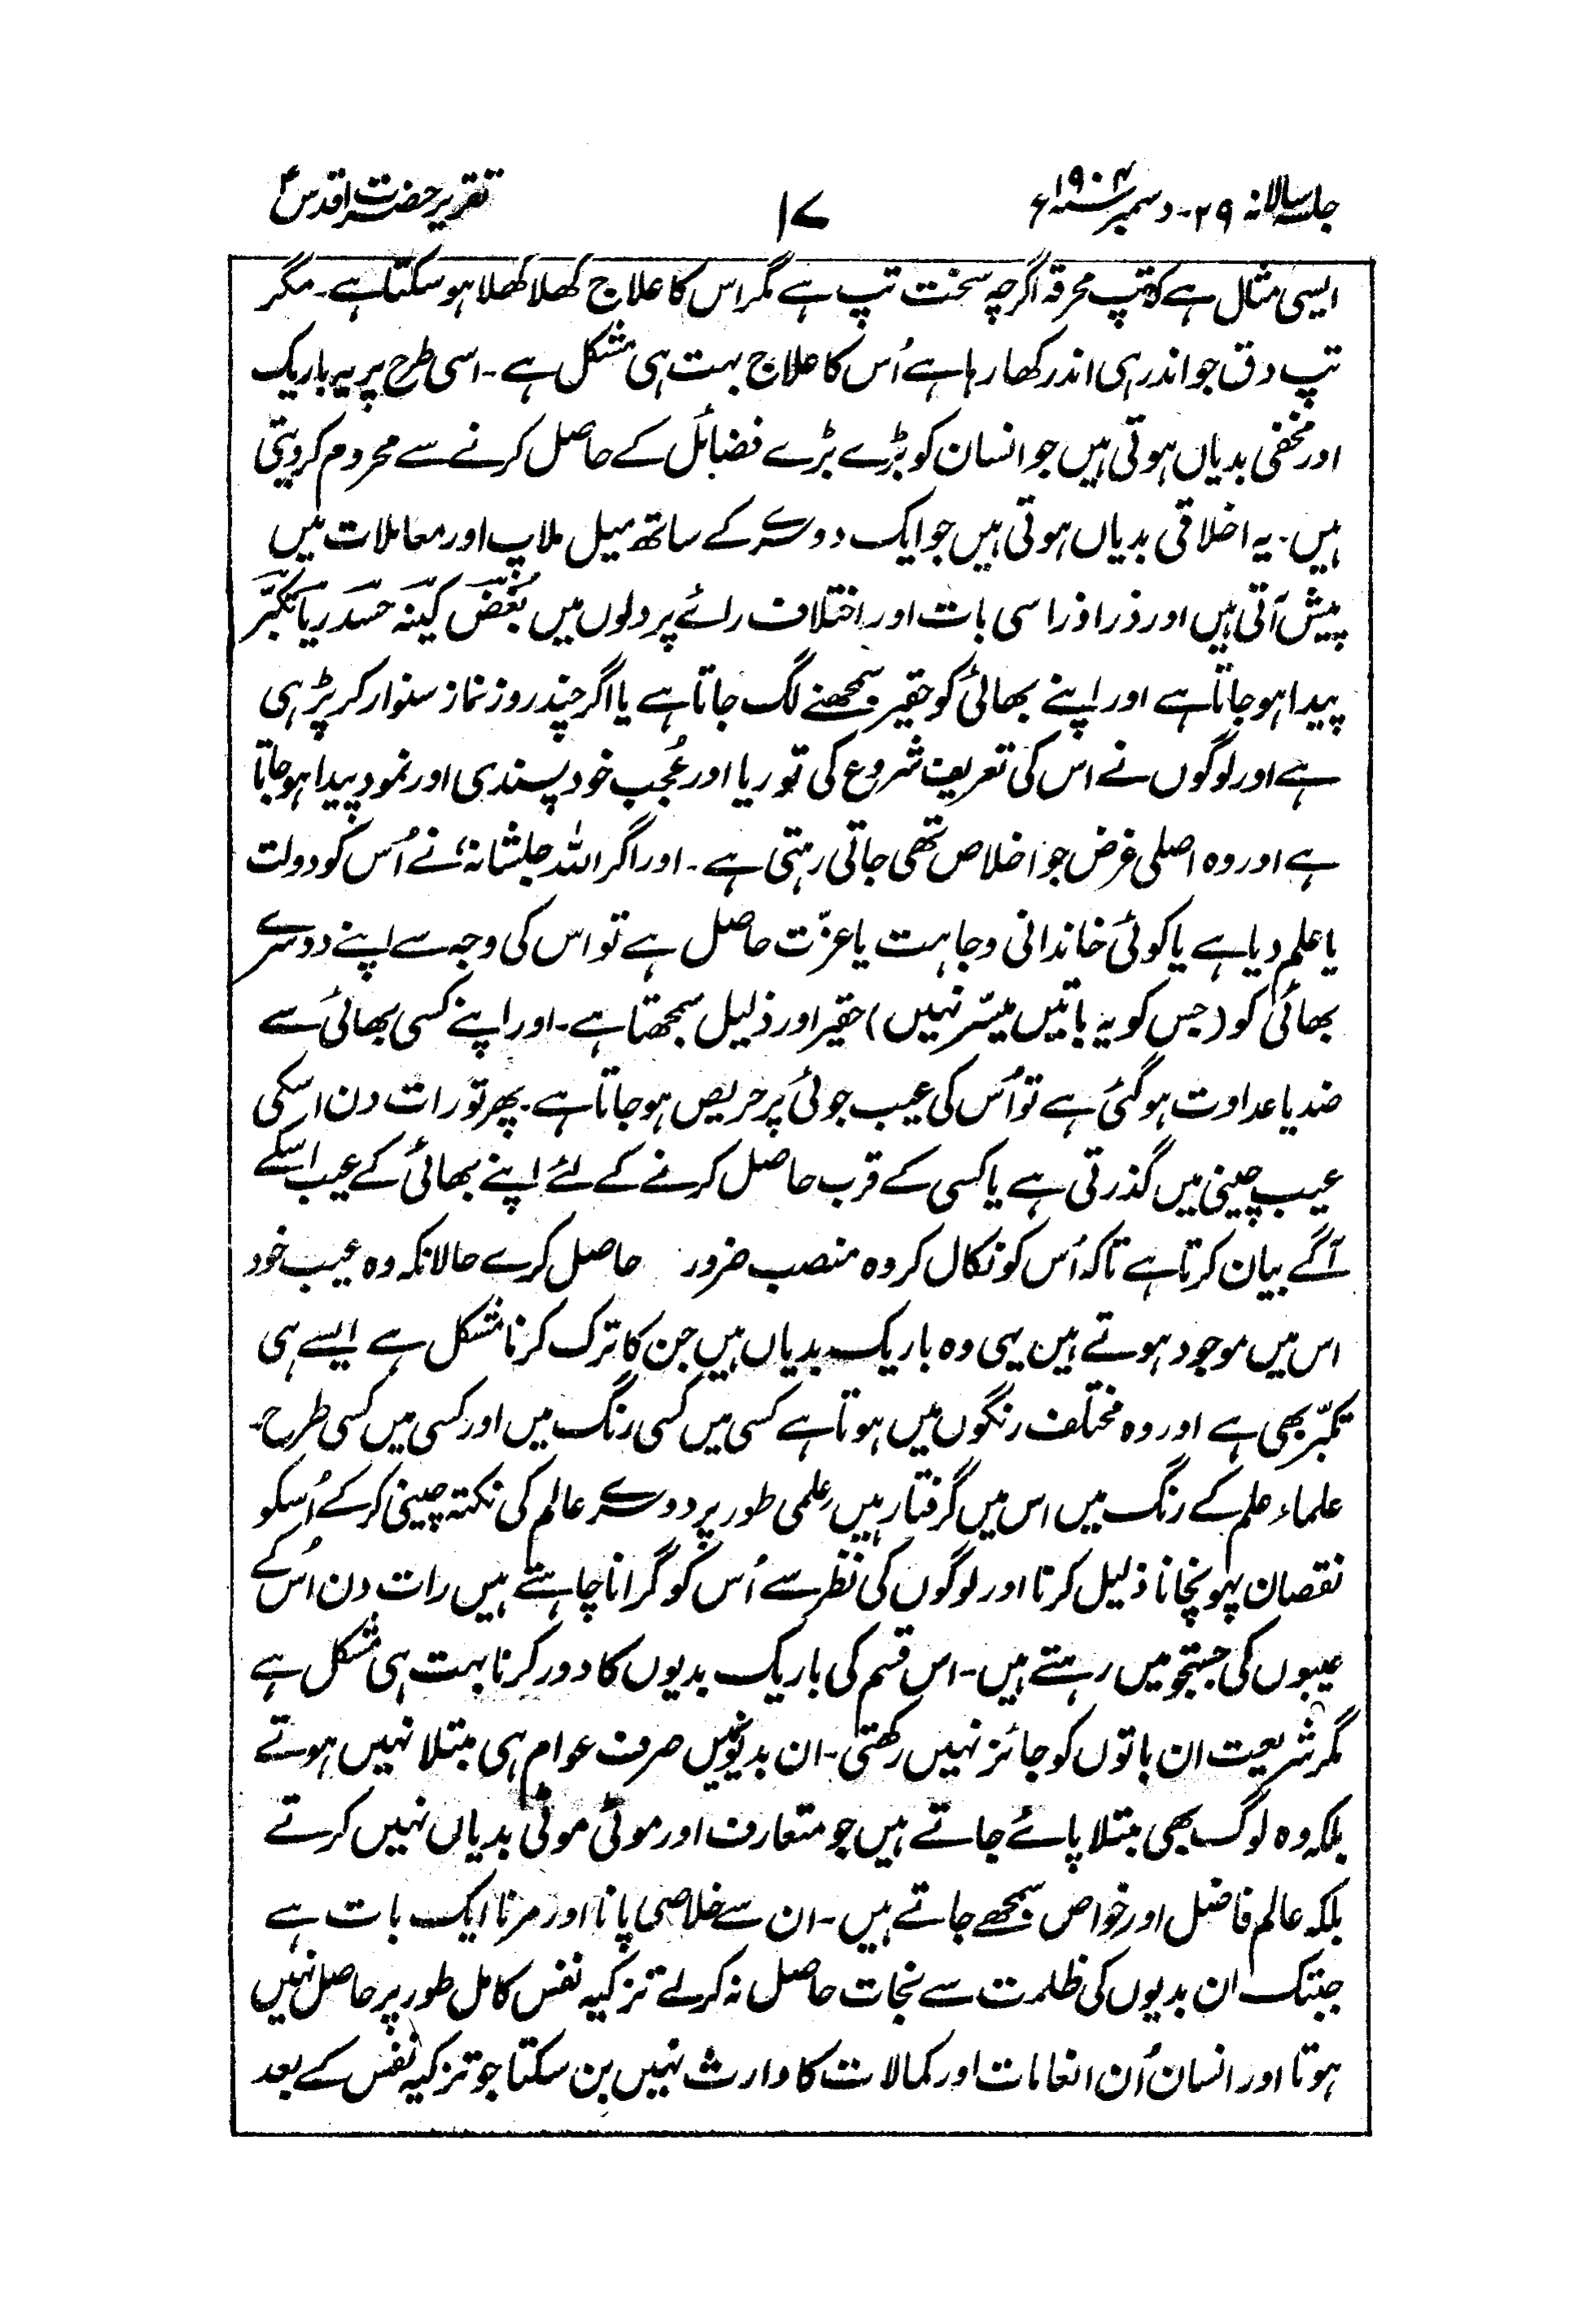 جلسہ سالانہ ۲۹۔دسمبر ۱۹۰۴ء
۱۷
تقریر حضرت اقدسؑ
ایسی مثال ہے کہ تپ محرقہ اگرچہ سخت تپ ہے مگر اس کا علاج کھلا کھلا ہو سکتا ہے۔ مگر
تپ دق جو اندر ہی اندر کھا رہا ہے اُس کا علاج بہت ہی مشکل ہے۔ اسی طرح پر یہ باریک
اور مخفی بدیاں ہوتی ہیں جو انسان کو بڑے بڑے فضائل کے حاصل کرنے سے محروم کر دیتی
ہیں۔ یہ اخلاقی بدیاں ہوتی ہیں جو ایک دوسرے کے ساتھ میل ملاپ اور معاملات میں
پیش آتی ہیں اور ذرا ذرا سی بات اور اختلاف رائے پر دلوں میں بُغض کینہ حسد ریا تکبّر
پیدا ہو جاتا ہے اور اپنے بھائی کو حقیر سمجھنے لگ جاتا ہے یا اگر چند روز نماز سنوار کر پڑہی
ہے اور لوگوں نے اس کی تعریف شروع کی تو ریا اور عُجب خود پسندی اور نمود پیدا ہو جاتا
ہے اور وہ اصلی غرض جو اخلاص تھی جاتی رہتی ہے۔ اور اگر اللہ جلشانہٗ نے اُس کو دولت
یا علم دیا ہے یا کوئی خاندانی وجاہت یا عزّت حاصل ہے تو اس کی وجہ سے اپنے دوسرے
بھائی کو (جس کو یہ باتیں میسّر نہیں) حقیر اور ذلیل سمجھتا ہے۔ اور اپنے کسی بھائی سے
ضد یا عداوت ہو گئی ہے تو اُس کی عیب جوئی پر حریص ہو جاتا ہے۔ پھر تو رات دن اسکی
عیب چینی میں گذرتی ہے یا کسی کے قرب حاصل کرنے کے لئے اپنے بھائی کے عیب اسکے
آگے بیان کرتا ہے تاکہ اُس کو نکال کر وہ منصب ضرور حاصل کرے حالانکہ وہ عیب خود
اس میں موجود ہوتے ہین یہی وہ باریک بدیاں ہیں جن کا ترک کرنا مشکل ہے ایسے ہی
تکبّر بھی ہے اور وہ مختلف رنگوں میں ہوتا ہے کسی میں کسی رنگ میں اور کسی میں کسی طرح۔
علماء علم کے رنگ میں اس میں گرفتار ہیں علمی طور پر دوسرے عالم کی نکتہ چینی کر کے اُسکو
نقصان پہونچانا ذلیل کرنا اور لوگوں کی نظر سے اُس کو گرانا چاہتے ہیں رات دن اُس کے
عیبوں کی جستجو میں رہتے ہیں۔ اس قسم کی باریک بدیوں کا دور کرنا بہت ہی مشکل ہے
مگر شریعت ان باتوں کو جائز نہیں رکھتی۔ ان بدیونمیں صرف عوام ہی مبتلا نہیں ہوتے
بلکہ وہ لوگ بھی مبتلا پائے جاتے ہیں جو متعارف اور موٹی موٹی بدیاں نہیں کرتے
بلکہ عالم فاضل اور خواص سمجھے جاتے ہیں۔ ان سے خلاصی پانا اور مرنا ایک بات ہے
جبتک ان بدیوں کی ظلمت سے نجات حاصل نہ کر لے تزکیہ نفس کامل طور پر حاصل نہیں
ہوتا اور انسان اُن انعامات اور کمالات کا وارث نہیں بن سکتا جو تزکیہ نفس کے بعد